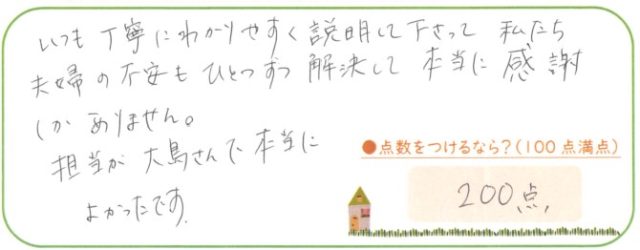 いつも丁寧にわかりやすく説明して下さって 私たち
夫婦の不安もひとつずつ解決して本当に感謝
しかありません。
担当が大島さんで本当に
よかったです。
●点数をつけるなら?(100点満点)
200点,